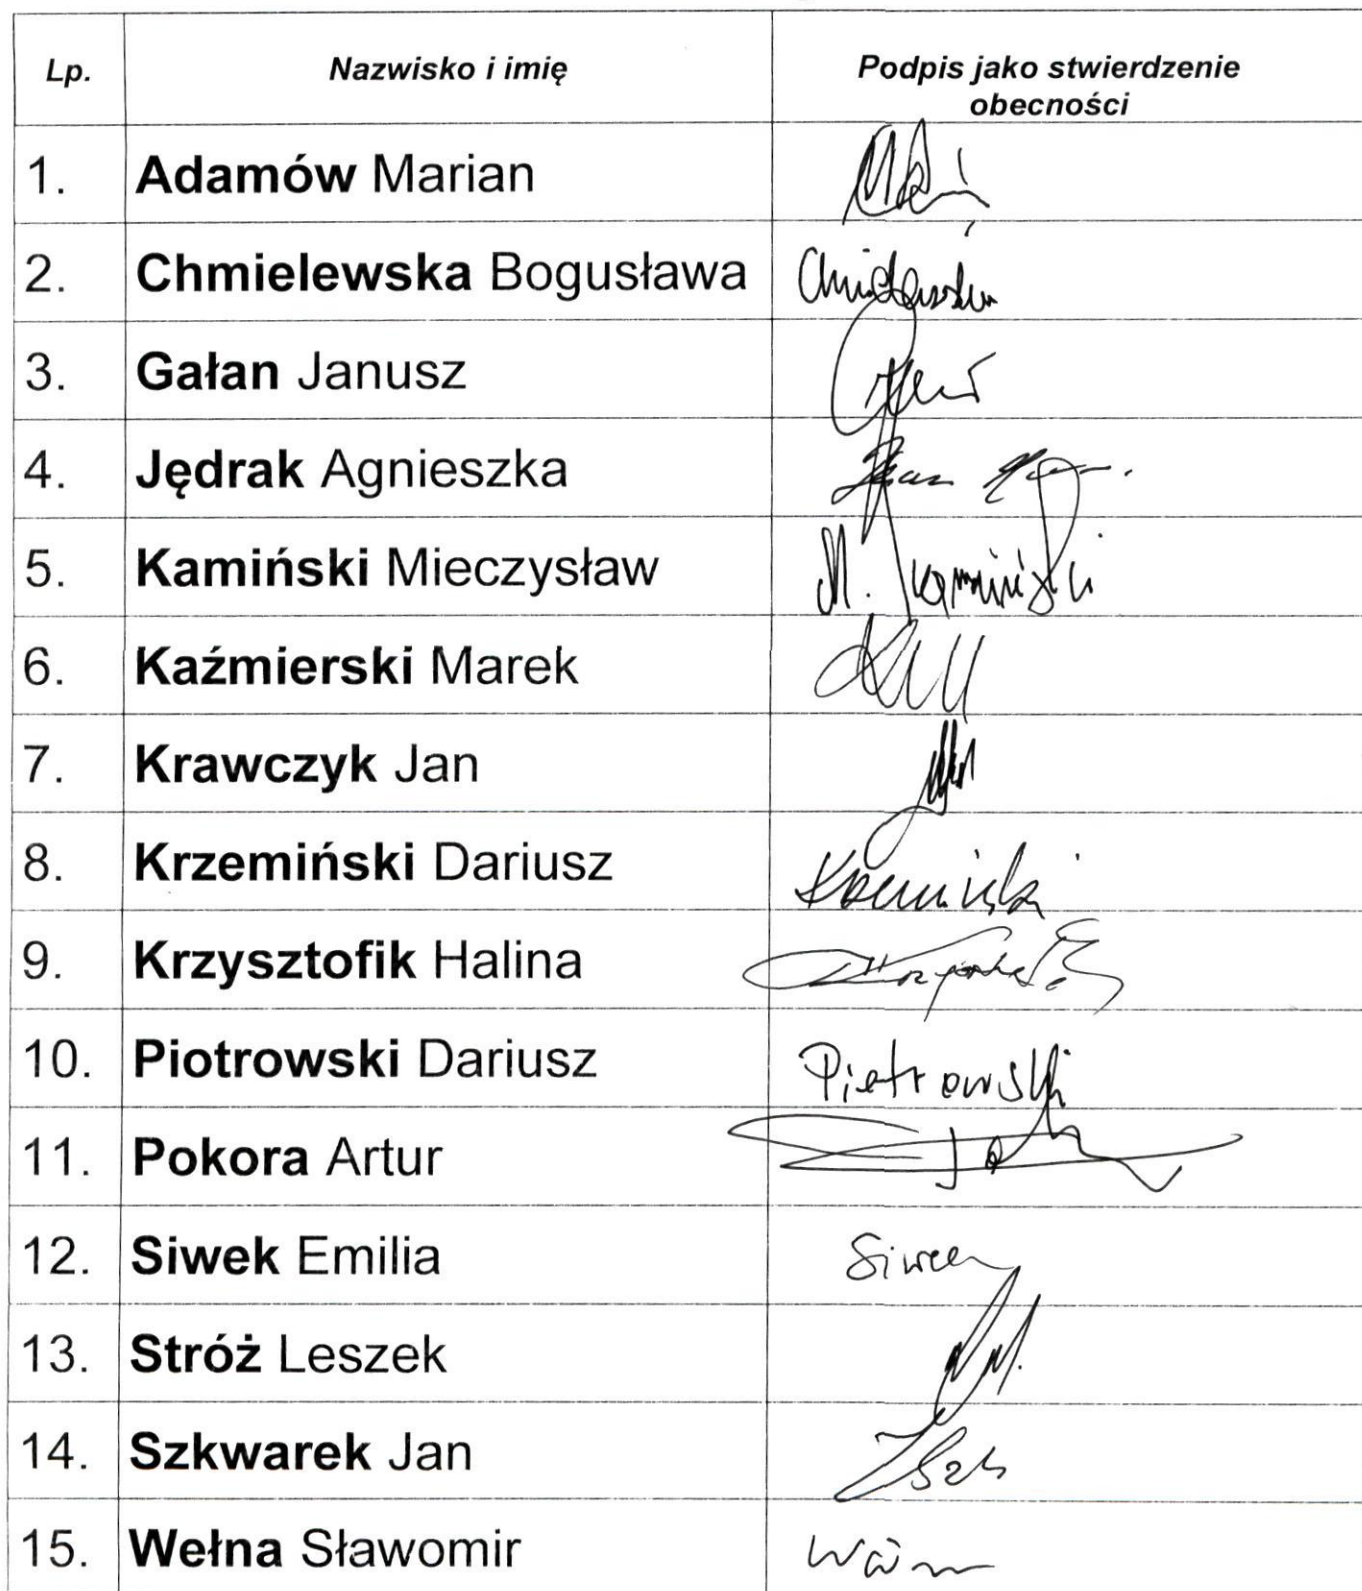 Lp. Nazwisko i imię Podpis jako stwierdzenie
obecności
1. Adamów Marian
2. Chmielewska Bogusława Chmielewska
3. Gałan Janusz
4. Jędrak Agnieszka
5. Kamiński Mieczysław M. Kamiński
6. Kaźmierski Marek
7. Krawczyk Jan
8. Krzemiński Dariusz Krzemiński
9. Krzysztofik Halina
10. Piotrowski Dariusz Piotrowski
11. Pokora Artur
12. Siwek Emilia Siwek
13. Stróż Leszek
14. Szkwarek Jan
15. Wełna Sławomir